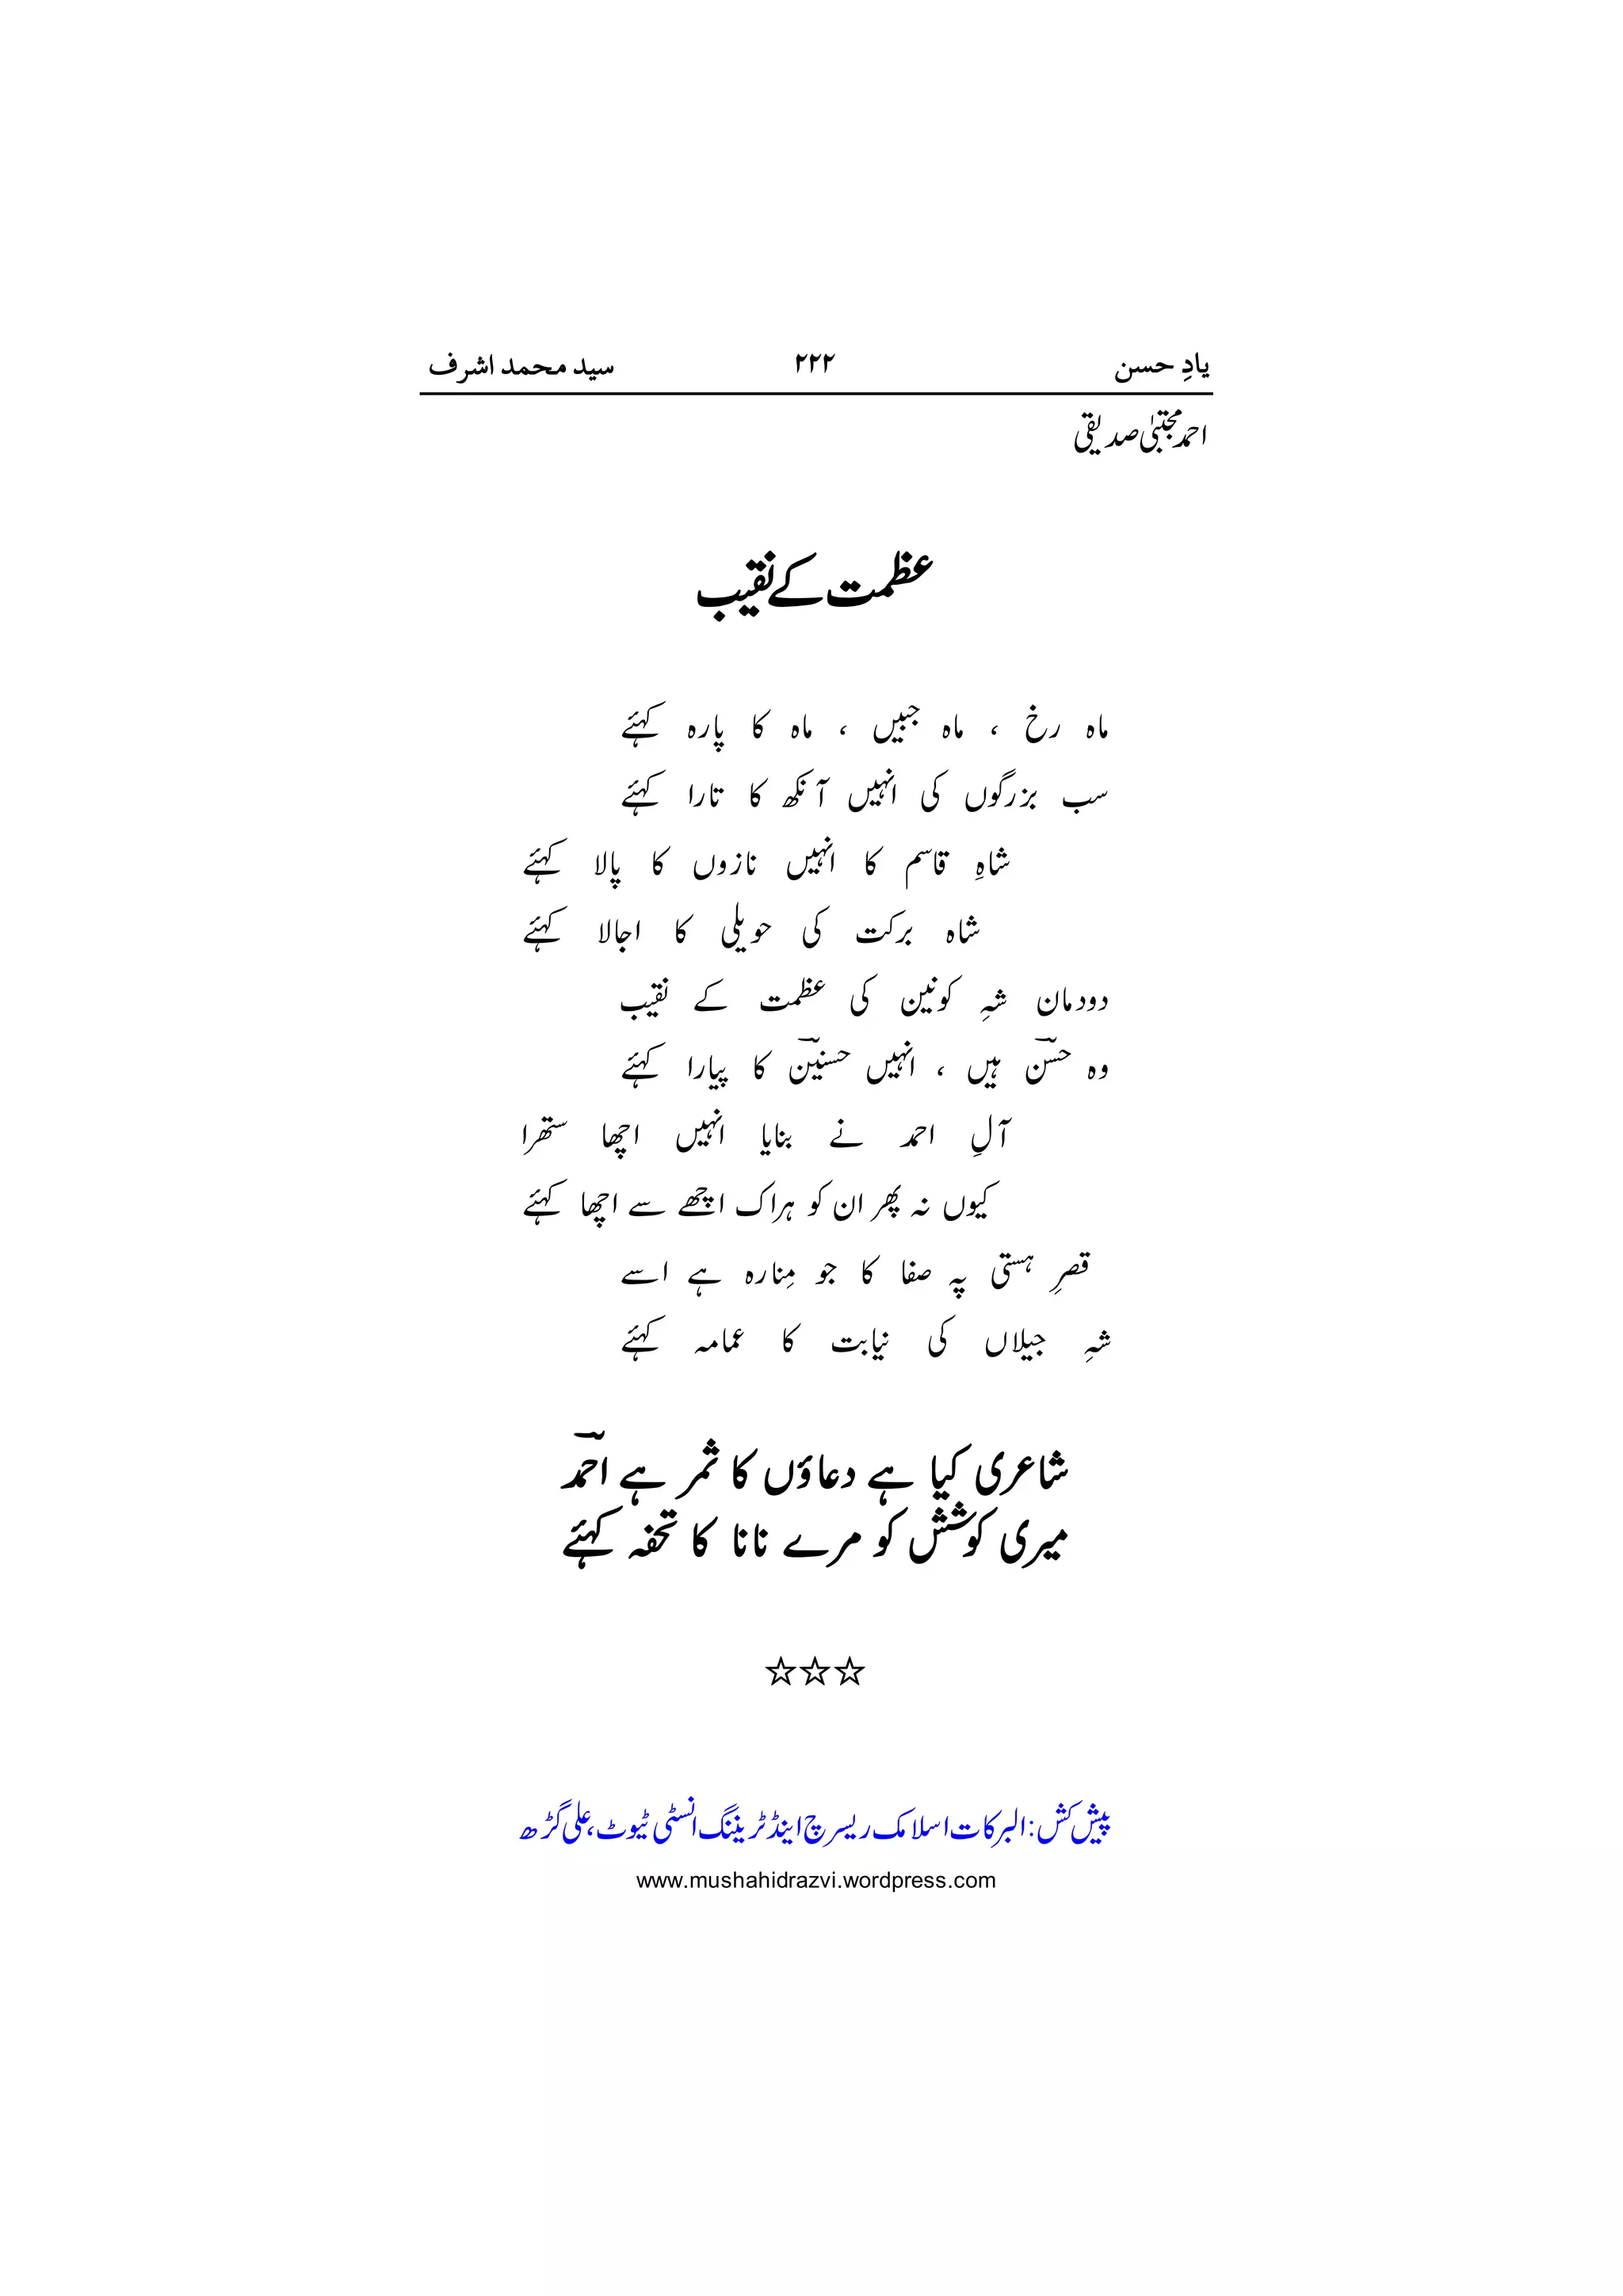 یادِ حسن ۲۲۲ سید محمد اشرف
احمد مجتبیٰ صدیقی
عظمت کے نقیب
ماہ رخ ، ماہ جبیں ، ماہ کا پارہ کہئے
سب بزرگوں کی انہیں آنکھ کا تارا کہئے
شاہِ قاسم کا انہیں نازوں کا پالا کہئے
شاہ برکت کی حویلی کا اجالا کہئے
دودمان شہِ کونین کی عظمت کے نقیب
وہ حسنؔ ہیں ، انہیں حسنینؔ کا پیارا کہئے
آلِ احمد نے بنایا انہیں اچھا ستھرا
کیوں نہ پھر ان کو ہراک اچھے سے اچھا کہئے
قصرِ ہستی پہ صفا کا جو مِنارہ ہے اسے
شہِ جیلاں کی نیابت کا عمامہ کہئے
شاعری کیا ہے دعاؤں کا ثمر ہے احمدؔ
میری کوشش کو مرے نانا کا تحفہ کہئے
☆☆☆
پیش کش: البرکات اسلامک ریسرچ اینڈ ٹریننگ انسٹی ٹیوٹ، علی گڑھ
www.mushahidrazvi.wordpress.com